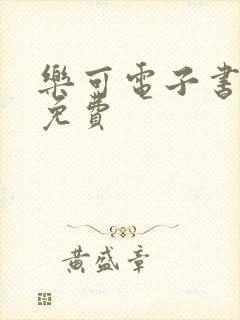 樂可電子書
免費
黃盛章